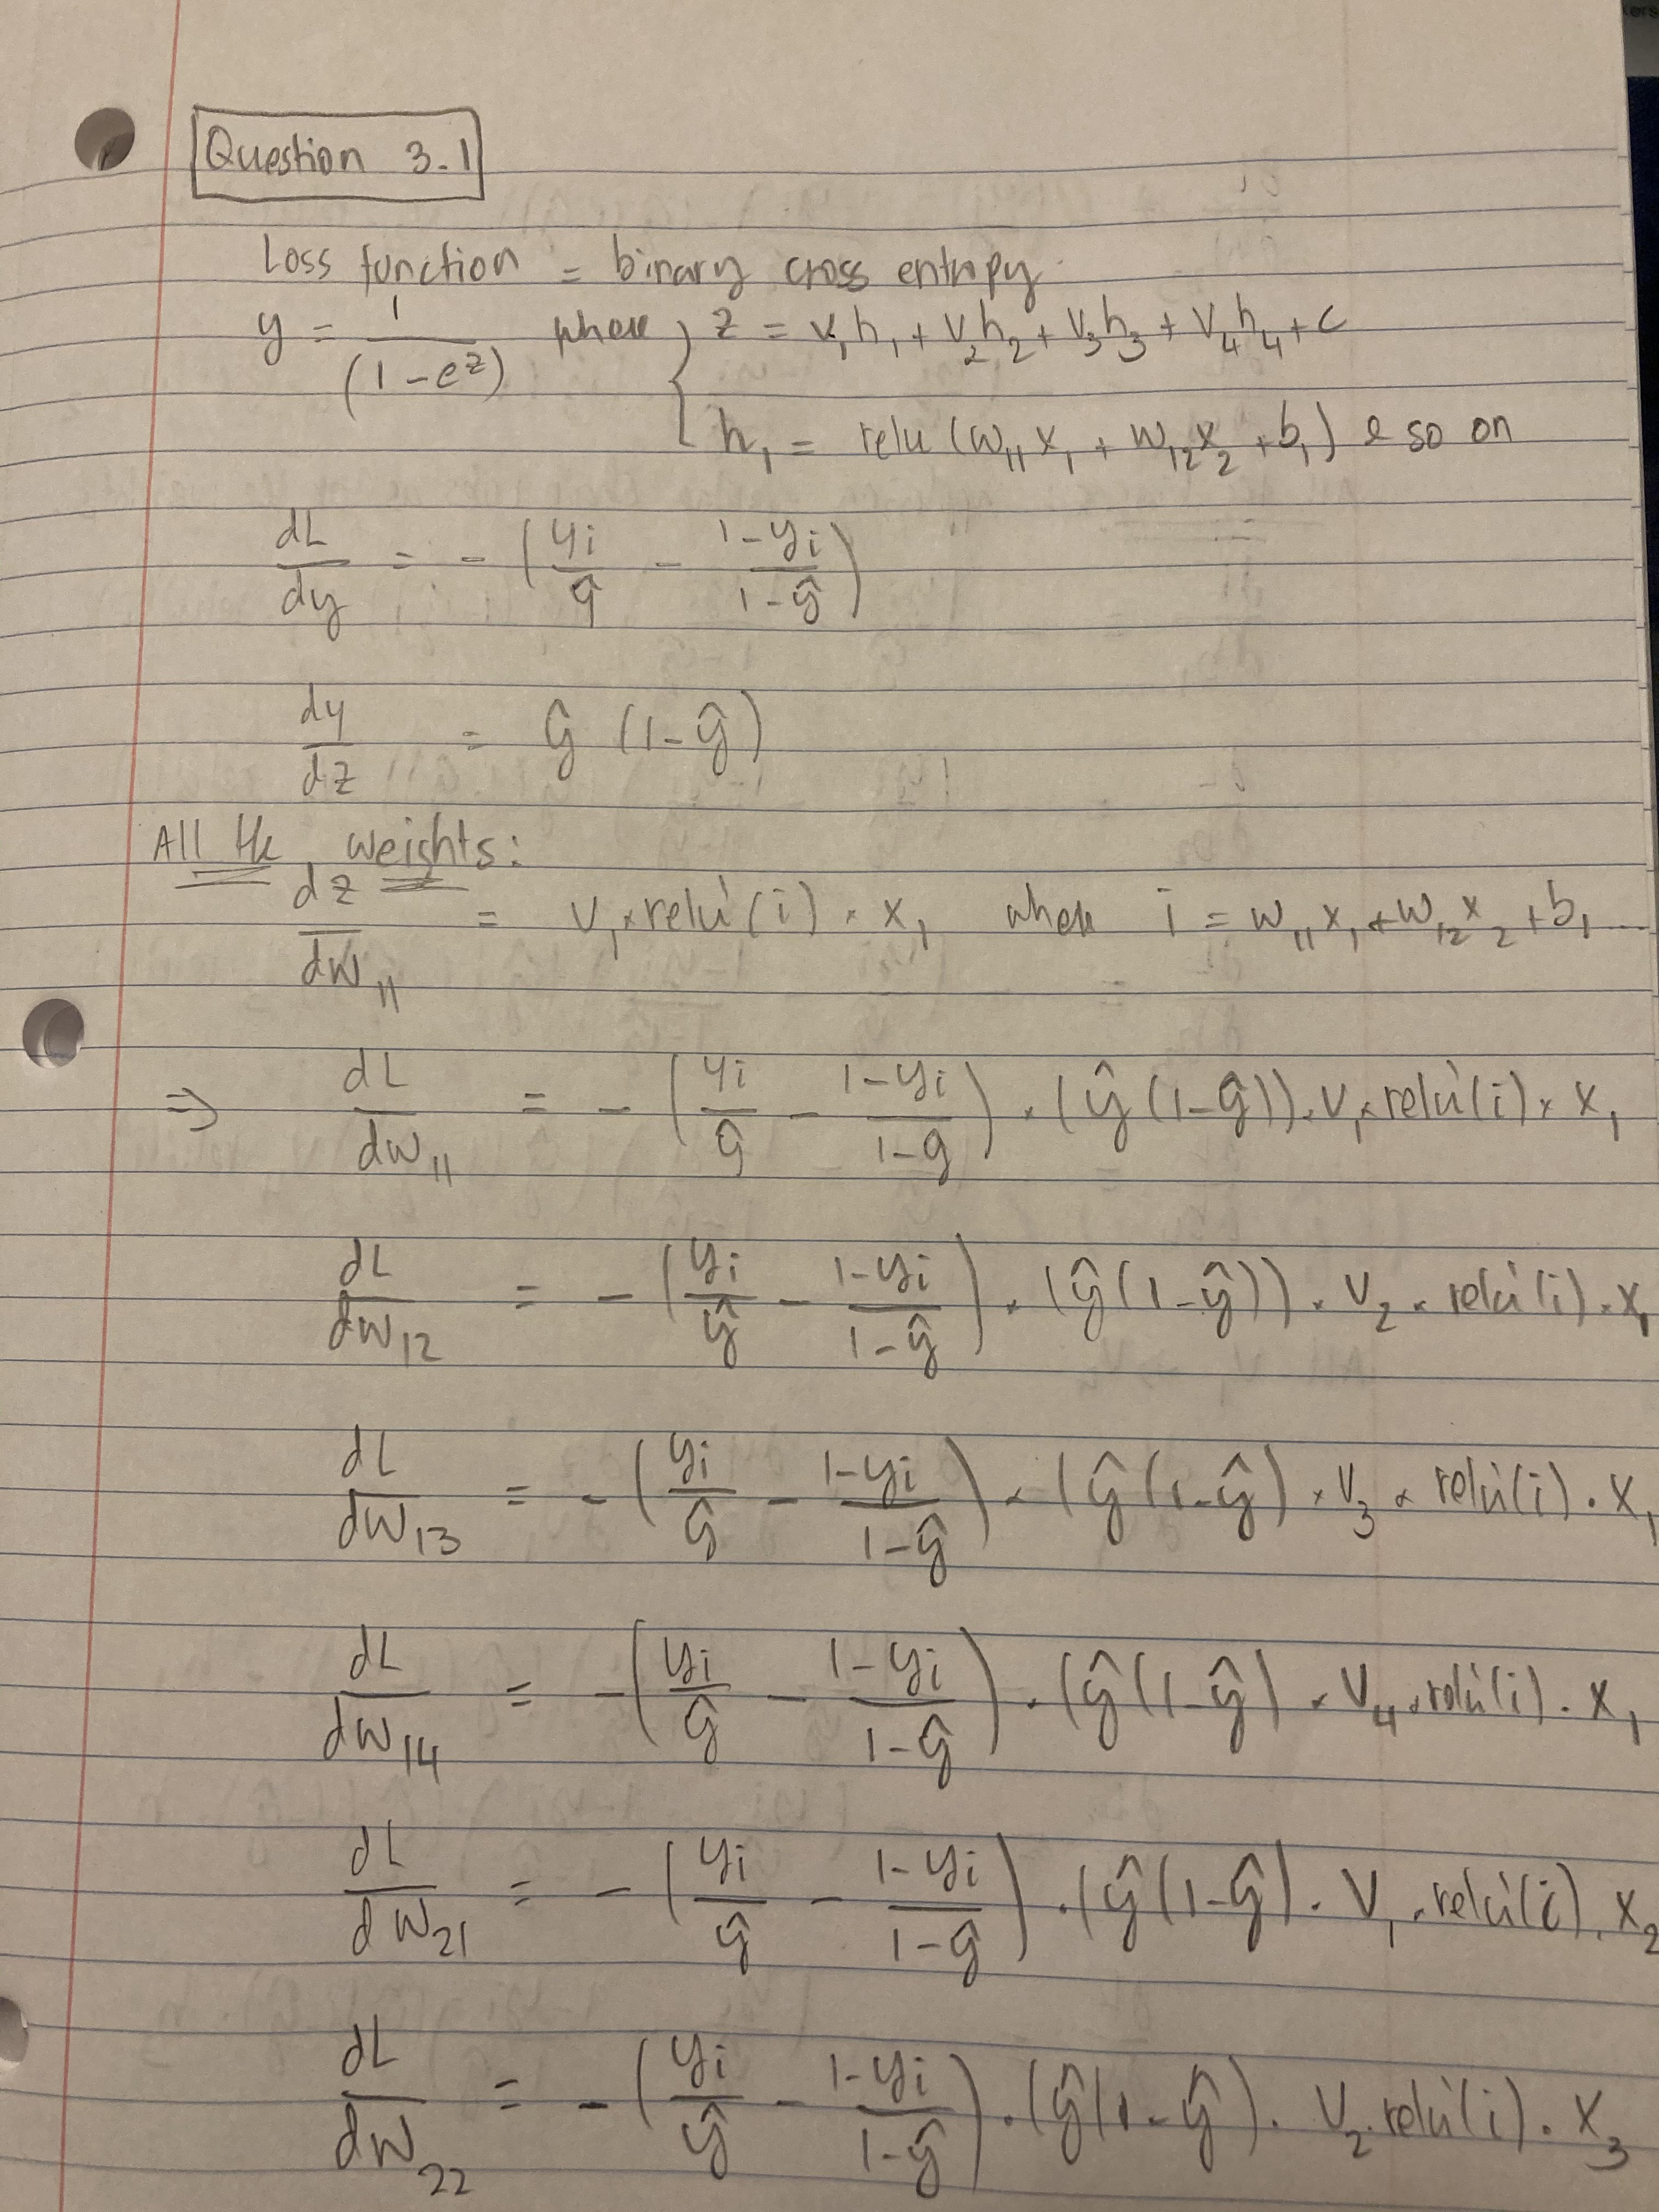 Question 3.1
Loss function = binary cross entropy.
y = 1/(1-e^z) where { z = v₁h₁ + v₂h₂ + v₃h₃ + v₄h₄ + c
h₁ = relu (w₁₁x₁ + w₁₂x₂ + b₁) & so on
dL/dy = -(yi/ŷ - (1-yi)/(1-ŷ))
dy/dz = ŷ (1-ŷ)
All the weights:
dz/dw₁₁ = v₁ × relu'(i) × x₁ where i = w₁₁x₁ + w₁₂x₂ + b₁ ...
⇒ dL/dw₁₁ = -(yi/ŷ - (1-yi)/(1-ŷ)) · (ŷ(1-ŷ)) · v₁ × relu'(i) × x₁
dL/dw₁₂ = -(yi/ŷ - (1-yi)/(1-ŷ)) · (ŷ(1-ŷ)) · v₂ · relu'(i) · x₁
dL/dw₁₃ = -(yi/ŷ - (1-yi)/(1-ŷ)) · (ŷ(1-ŷ) · v₃ · relu'(i) · x₁
dL/dw₁₄ = -(yi/ŷ - (1-yi)/(1-ŷ)) · (ŷ(1-ŷ) · v₄ · relu'(i) · x₁
dL/dw₂₁ = -(yi/ŷ - (1-yi)/(1-ŷ)) · (ŷ(1-ŷ) · v₁ · relu'(i) · x₂
dL/dw₂₂ = -(yi/ŷ - (1-yi)/(1-ŷ)) · (ŷ(1-ŷ) · v₂ · relu'(i) · x₃